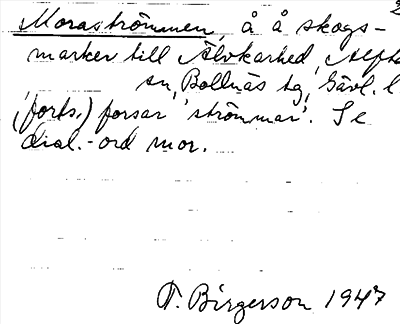 Moraströmmen, å å skogs-
marker till Älvkarhed, Alfta
sn, Bollnäs tg, Gävl. l
(forts.) forsar 'strömmar'. Se
dial.-ord mor.
T. Birgerson 1947